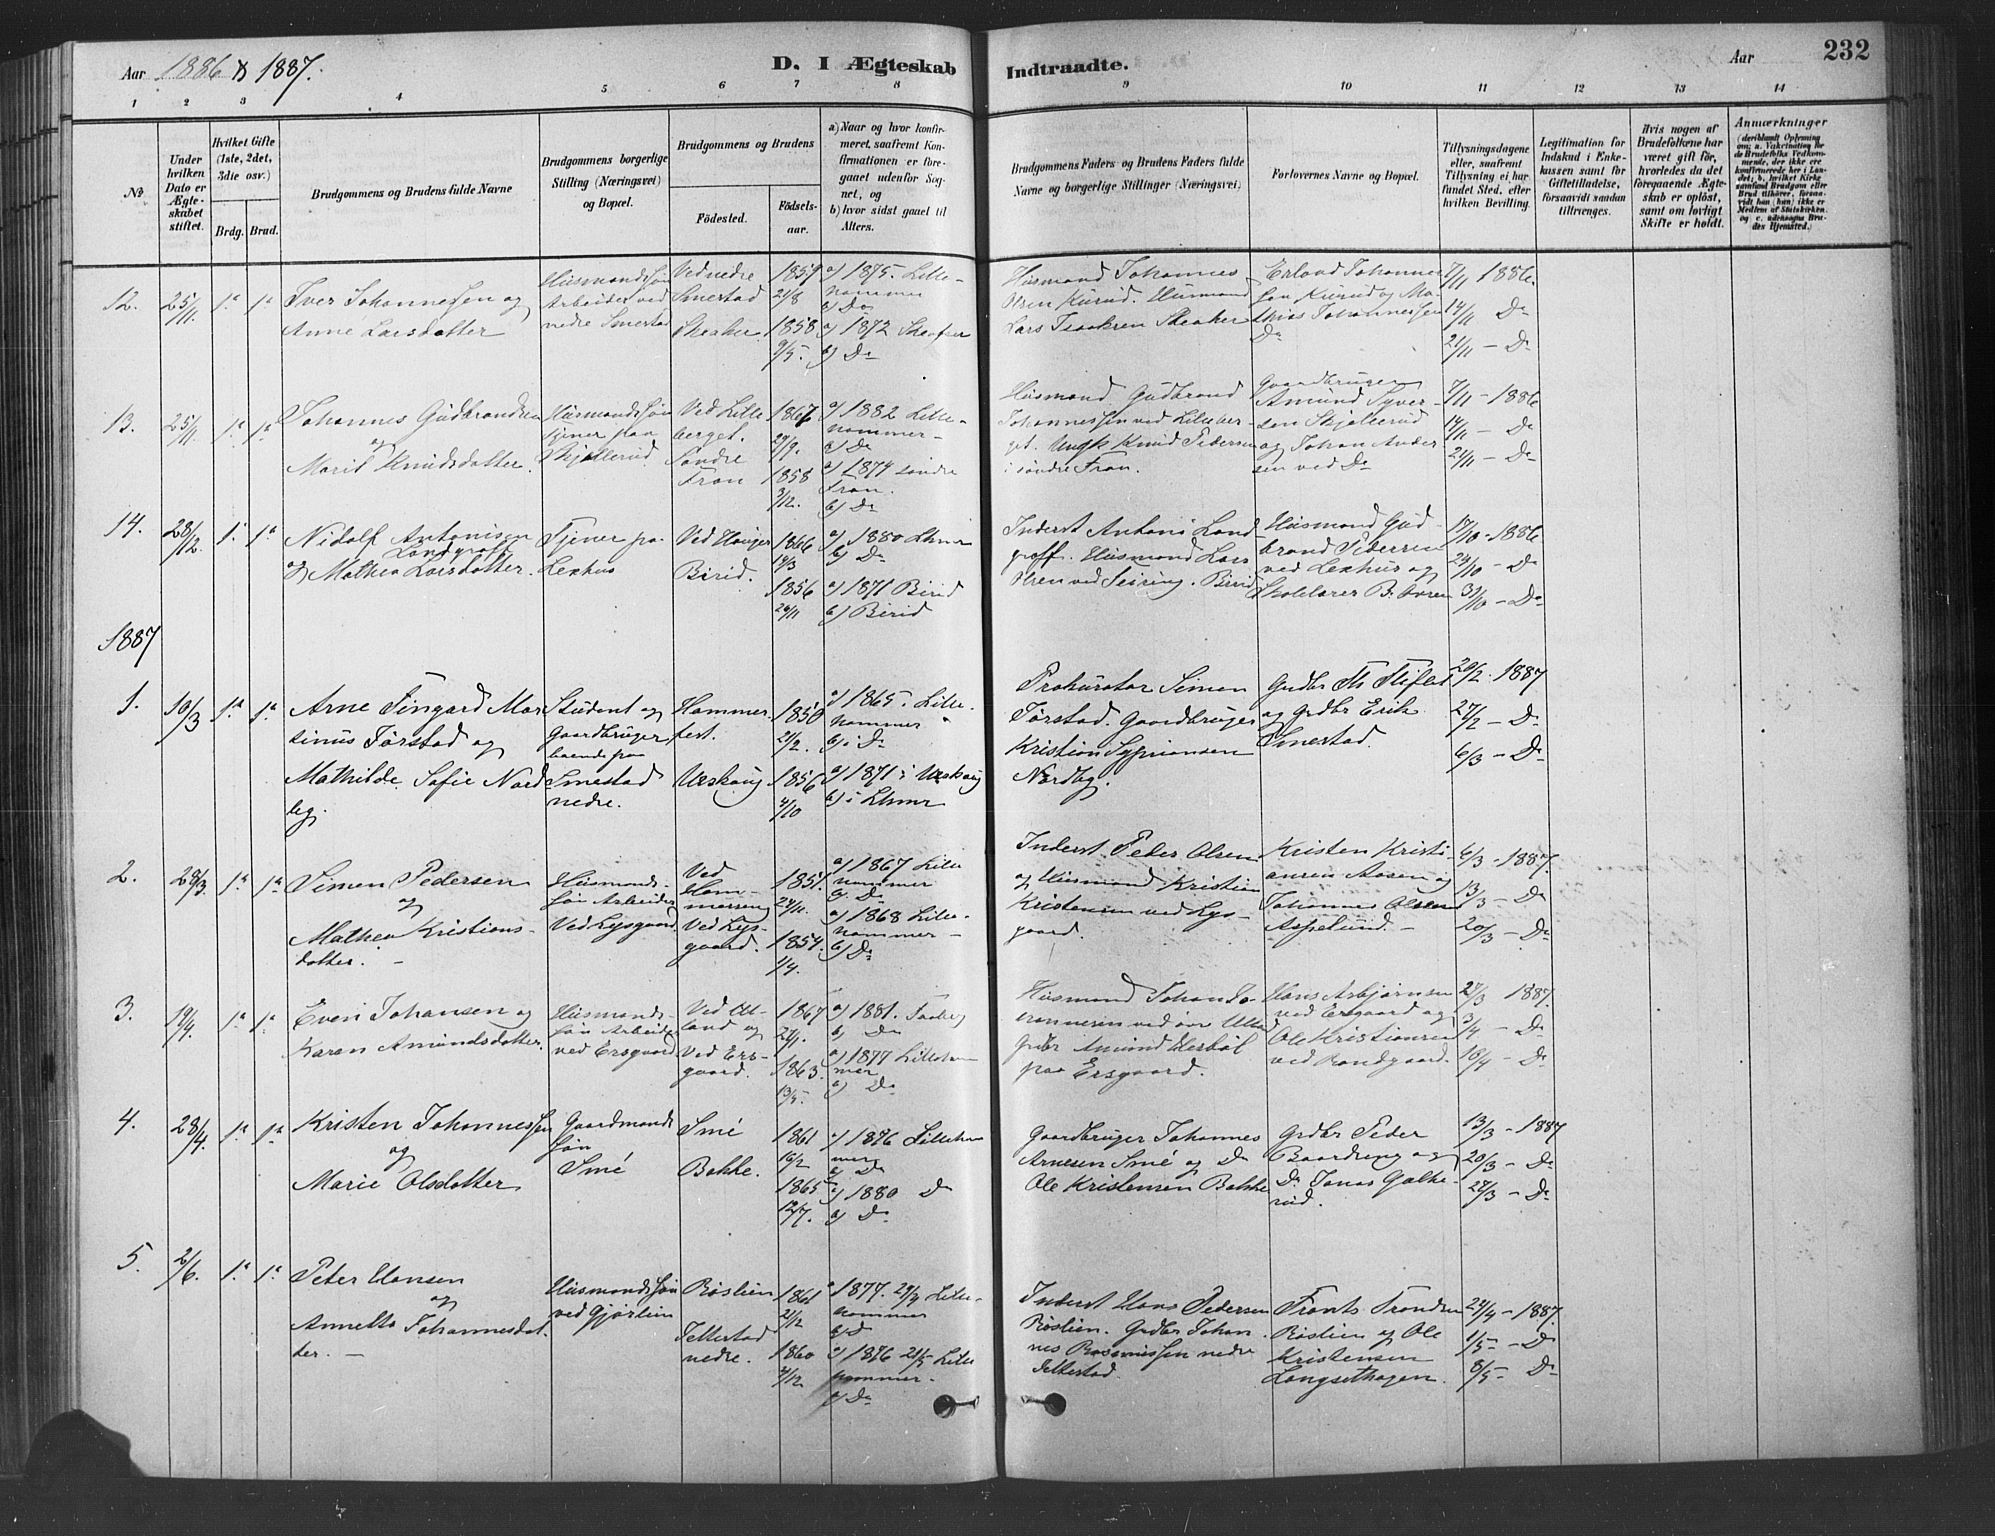 Aar 1886 & 1887.
D. I Ægteskab
Indtraadte.
Aar
232
1 2 3 4 5 6 7 8 9 10 11 12 13 14
No
Under hvilken Dato er Ægteskabet stiftet.
Hvilket Gifte (1ste, 2det, 3die osv.)
Brdg. Brud.
Brudgommens og Brudens fulde Navne
Brudgommens borgerlige Stilling (Næringsvei) og Bopæl.
Brudgommens og Brudens
Födested.
Födsels-aar.
a) Naar og hvor konfirmeret, saafremt Konfirmationen er foregaaet udenfor Sognet, og
b) hvor sidst gaaet til Alters.
Brudgommens Faders- og Brudens Faders fulde Navne og borgerlige Stillinger (Næringsvei)
Forlovernes Navne og Bopæl.
Tillysningsdagene eller, saafremt Tillysning ei har fundet Sted, efter hvilken Bevilling.
Legitimation for Indskud i Enkekassen samt for Giftetilladelse, forsaavidt saadan tiltrænges.
Hvis nogen af Brudefolkene har været gift för, hvorledes da det foregaaende Ægteskab er oplöst, samt om lovligt Skifte er holdt.
Anmærkninger
12. 25/11. 1ª 1ª
Iver Johannessen og
Anne Larsdatter
Husmandssøn
Arbeider ved
nedre Smestad
Ved nedre
Smestad
1859
21/8
a) 1875. Lille-
hammer
b) Do
1858
9/5.
a) 1872
b) Do
Husmand Johannes
Olsen Kurud. Husmand
Lars Isaksen
Erland Johannes-
sen Kurud og Ma-
thias Johannessen
Do
7/11 1886.
14/11 Do
21/11 – Do
13. 25/11. 1ª 1ª
Johannes Gudbrandsen
og
Marit Knudsdatter.
Husmandssøn
tjener paa
Skjellerud
Ved Lille-
berget.
Søndre
Fron
1867
29/9.
1858
3/12.
a) 1882 Lille-
hammer –
b) Do
a) 1874 søndre
Fron.
b) Do
Husmand Gudbrand
Johannessen ved Lilleber-
get. Ungk Knud Pedersen
i søndre Fron.
Gaardbruger
Amund Syver-
sen Skjellerud
og Johan Ander-
sen ved Do
7/11 – 1886
14/11 – Do
21/11 – Do
14. 28/12. 1. 1ª
Nidolf Antonisen
Landgraff
og Mathea Larsdatter.
Tjener paa
Lexhus
Ved Hauger
Birid.
1866
14/3
1856
26/11
a) 1880 Lhmr
b) Do
a) 1871 Birid
b) Birid
Inderst Anthoni Land-
graff. Husmand Lars
Olsen ved Seiring. Birid
Husmand Gud-
brand Pedersen
ved Lexhus og
Skolelærer B.
17/10 – 1886
24/10 – Do
31/10 – Do
1887
1. 10/3 1ª 1ª
Arne Fingard Mar-
tinus Tørstad og
Mathilde Sofie Nord-
by.
Student og
Gaardbruger
boende paa
Smestad
nedre.
Hammer-
fest.
Urskoug
1850
21/2.
1856
4/10
a) 1865. Lille-
hammer
b) i Do
a) 1871 i Urskoug
b) i Lhmr
Prokurator Simen
Tørstad. Gaardbruger
Kristian Syprionsen
Nordby.
Gudbr Th Stiftes
og Grdbr Erik
Smestad.
20/2 – 1887
27/2 – Do
6/3 – Do
2. 28/3. 1ª 1ª
Simen Pedersen
og
Mathea Kristians-
datter. –
Husmands-
søn Arbeider
Ved Lysgaard
Ved
Ham-
mereng
Ved Lys-
gaard.
1851.
24/11.
1854.
1/4.
a) 1867 Lille
hammer
b) Do
a) 1868 Lille-
hammer –
b) Do
Inderst Peder Olsen
og Husmand Kristian
Kristensen ved Lys-
gaard.
Kristen Kristi-
ansen Aasen og
Johannes Olsen
Aspelund. –
6/3 – 1887.
13/3 – Do
20/3 – Do
3. 19/4. 1ª 1ª
Even Johansen og
Karen Amundsdatter.
Husmands-
søn Arbeider
ved Ersgaard
Ved
land og
Ved Ers-
gaard.
1867
27/1.
1863.
13/5.
a) 1881. Faaberg
b) Do
a) 1877 Lilleham
mer
b) Do
Husmand Johan
ved
grdbr Amund
paa Ersgaard.
Hans Asbjørnsen
ved Ersgaard og
Ole Kristiansen
ved Rondgaard.
27/3 1887.
3/4 – Do
10/4 – Do
4. 28/4. 1ª 1ª
Kristen Johannessen
og
Marie Olsdatter
Gaardmands
søn
Smé
Smé
Bakke.
1861
16/2
1865
12/7.
a) 1876 Lilleham
mer
b) Do
a) 1880 Do
b) Do
Gaardbruger Johannes
Arnesen Smé og Do
Ole Kristensen Bakke
Grdbr Peder
Baardseng og
Do Jonas Galte-
rud.
13/3 – 1887
20/3 – Do
27/3 – Do
5. 2/6. 1ª 1ª
Peter Hansen
og
Annette Johannesdat-
ter. –
Husmandssøn
ved Gjørlien
Røslien
Jettestad
nedre.
1861
21/12
1860
4/12
a) 1877. 29/4 Lille-
hammer
b) Do
a) 1876 21/5 Lille
hammer.
b) Do
Inderst Hans Pedersen
Røslien. Grdbr Johan-
nes Rasmussen nedre
Jettestad.
Frants Trondsen
Røslien og Ole
Kristensen
Langsethagen.
24/4 – 1887.
1/5 – Do
8/5 – Do